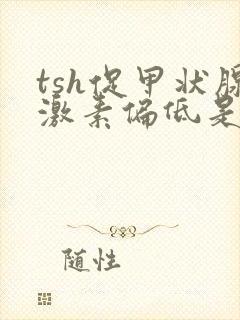 tsh促甲状腺
激素偏低是
随性